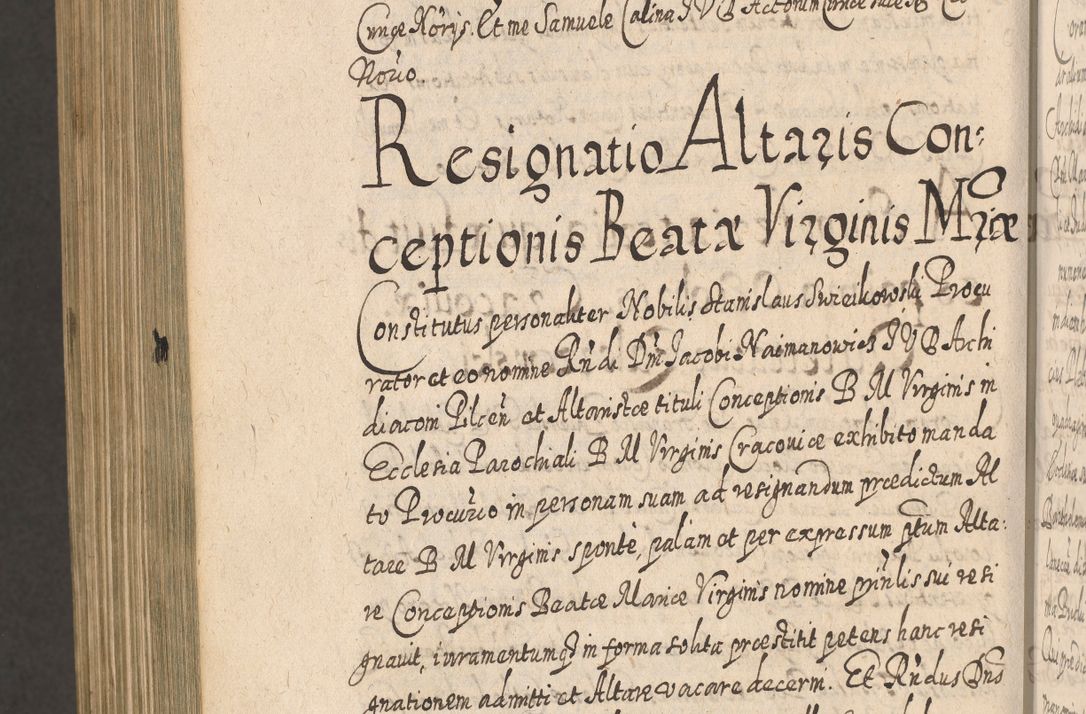 Cunqe Norjs. Et me Samuele Calina J V B Actorum
Norio
Resignatio Altaris Con:
ceptionis Beatæ Virginis Mriæ
Constitutus personaliter Nobilis Stanislaus Swieikowski Procu
rator et eo nomine Rñdi Dñi Jacobi Naimanowicz J V B Archi
diaconi Pilceñ et Altaristæ tituli Conceptionis B M Virginis in
Ecclesia Parochiali B M Virginis Cracoviæ exhibito manda
to Procurio in personam suam ad resignandum prædictum Al
tare B M Virginis sponte, palam et per expressum ptum Alta:
re Conceptionis Beatæ Mariæ Virginis nomine prinlis sui resi
gnavit, iuramentumqz in forma solita præstitit petens hanc resi
gnationem admitti et Altare vacare decerni. Et Rñdus Dñs